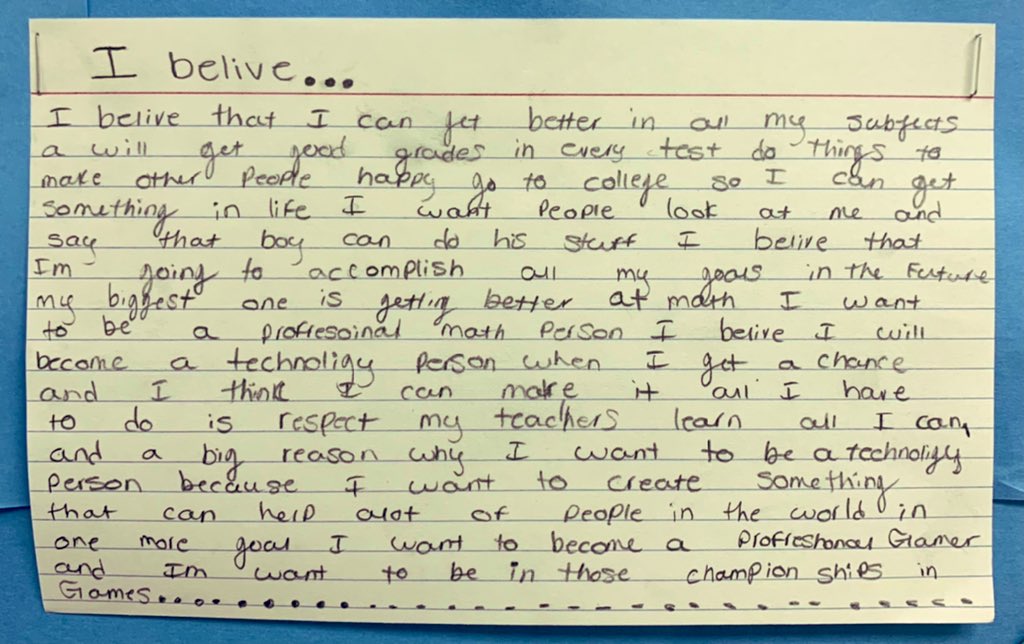 I belive...
I belive that I can get better in all my subjects
a will get good grades in every test do things to
make other people happy go to college so I can get
something in life I want people look at me and
say that boy can do his stuff I belive that
Im going to accomplish all my goals in the Future
my biggest one is getting better at math I want
to be a profresoinal math person I belive I will
become a technoligy person when I get a chance
and I think I can make it all I have
to do is respect my teachers learn all I can,
and a big reason why I want to be a technoligy
person because I want to create something
that can help alot of people in the world in
one more goal I want to become a profreshonal Gamer
and Im want to be in those champion ships in
Games..............................